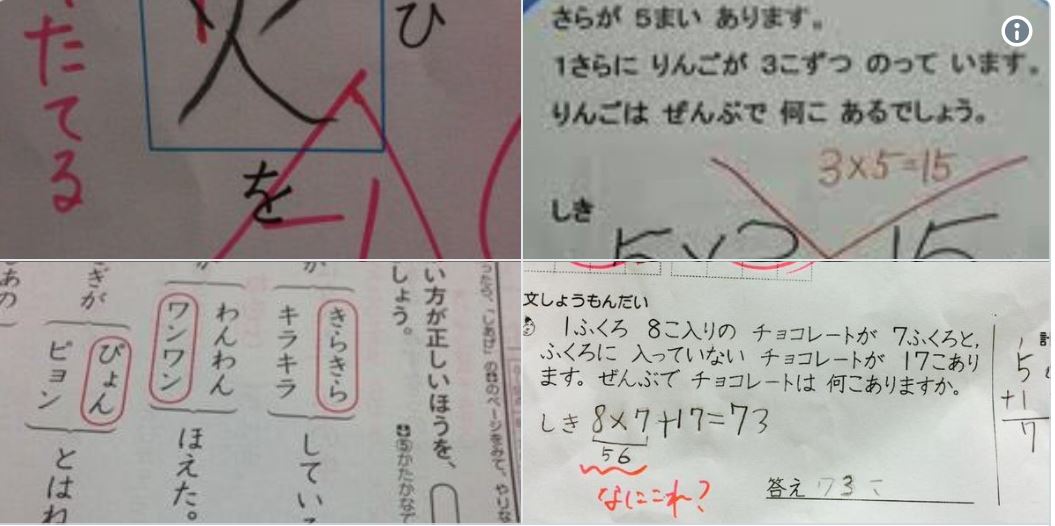 たてる
火
ひ
を
さらが 5まい あります。
1さらに りんごが 3こずつ のって います。
りんごは ぜんぶで 何こ あるでしょう。
3×5=15
しき
い方が正しいほうを、
しょう。
きらきら
キラキラ
してい
わんわん
ワンワン
ほえた。
ぎが
ぴょん
ピョン
とはね
あの
文しょうもんだい
1ふくろ 8こ入りの チョコレートが 7ふくろと,
ふくろに 入っていない チョコレートが 17こあり
ます。ぜんぶで チョコレートは 何こありますか。
しき 8×7+17=73
56
なにこれ?
答え 73こ
5
+1
7